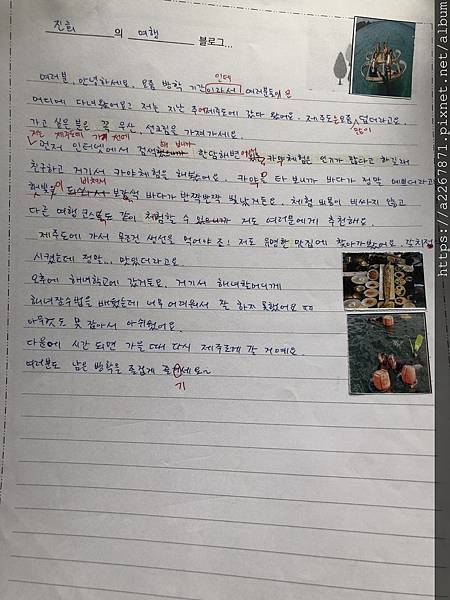 진희 의 여행 블로그...
인데
여러분, 안녕하세요. 요즘 방학 기간이라서 여러분들은
어디에 다녀왔어요? 저는 지난 주에 제주도에 갔다 왔어요. 제주도는 요즘 덥더라고요.
많이
가고 싶은 분은 꼭 우산, 선크림은 가져가세요.
저는 제주도에 가기 전에 해 보니까
먼저 인터넷에서 검색 한담해변 카약 체험은 인기가 많다고 하길래
친구하고 거기서 카약 체험을 해봤어요. 카약을 타 보니까 바다가 정말 예쁘더라고
비쳐서
햇빛이 바다가 반짝반짝 빛났거든요. 체험 비용이 비싸지 않고
다른 여행 코스도 같이 체험할 수 있으니까 저도 여러분에게 추천해요.
제주도에 가서 무조건 생선을 먹어야 죠! 저도 유명한 맛집에 찾아가봤어요. 갈치집
시켰는데 정말... 맛있더라고요
오후에 해녀학교에 갔거든요. 거기서 해녀할머니께
해녀잠수법을 배웠는데 너무 어려워서 잘 하지 못했어요 ㅠㅠ
아무것도 못 잡아서 아쉬웠어요.
다음에 시간 되면 가을 때 다시 제주도에 갈 거예요.
여러분도 남은 방학을 즐겁게 세요~
기
https://a2267871.pixnet.net/album